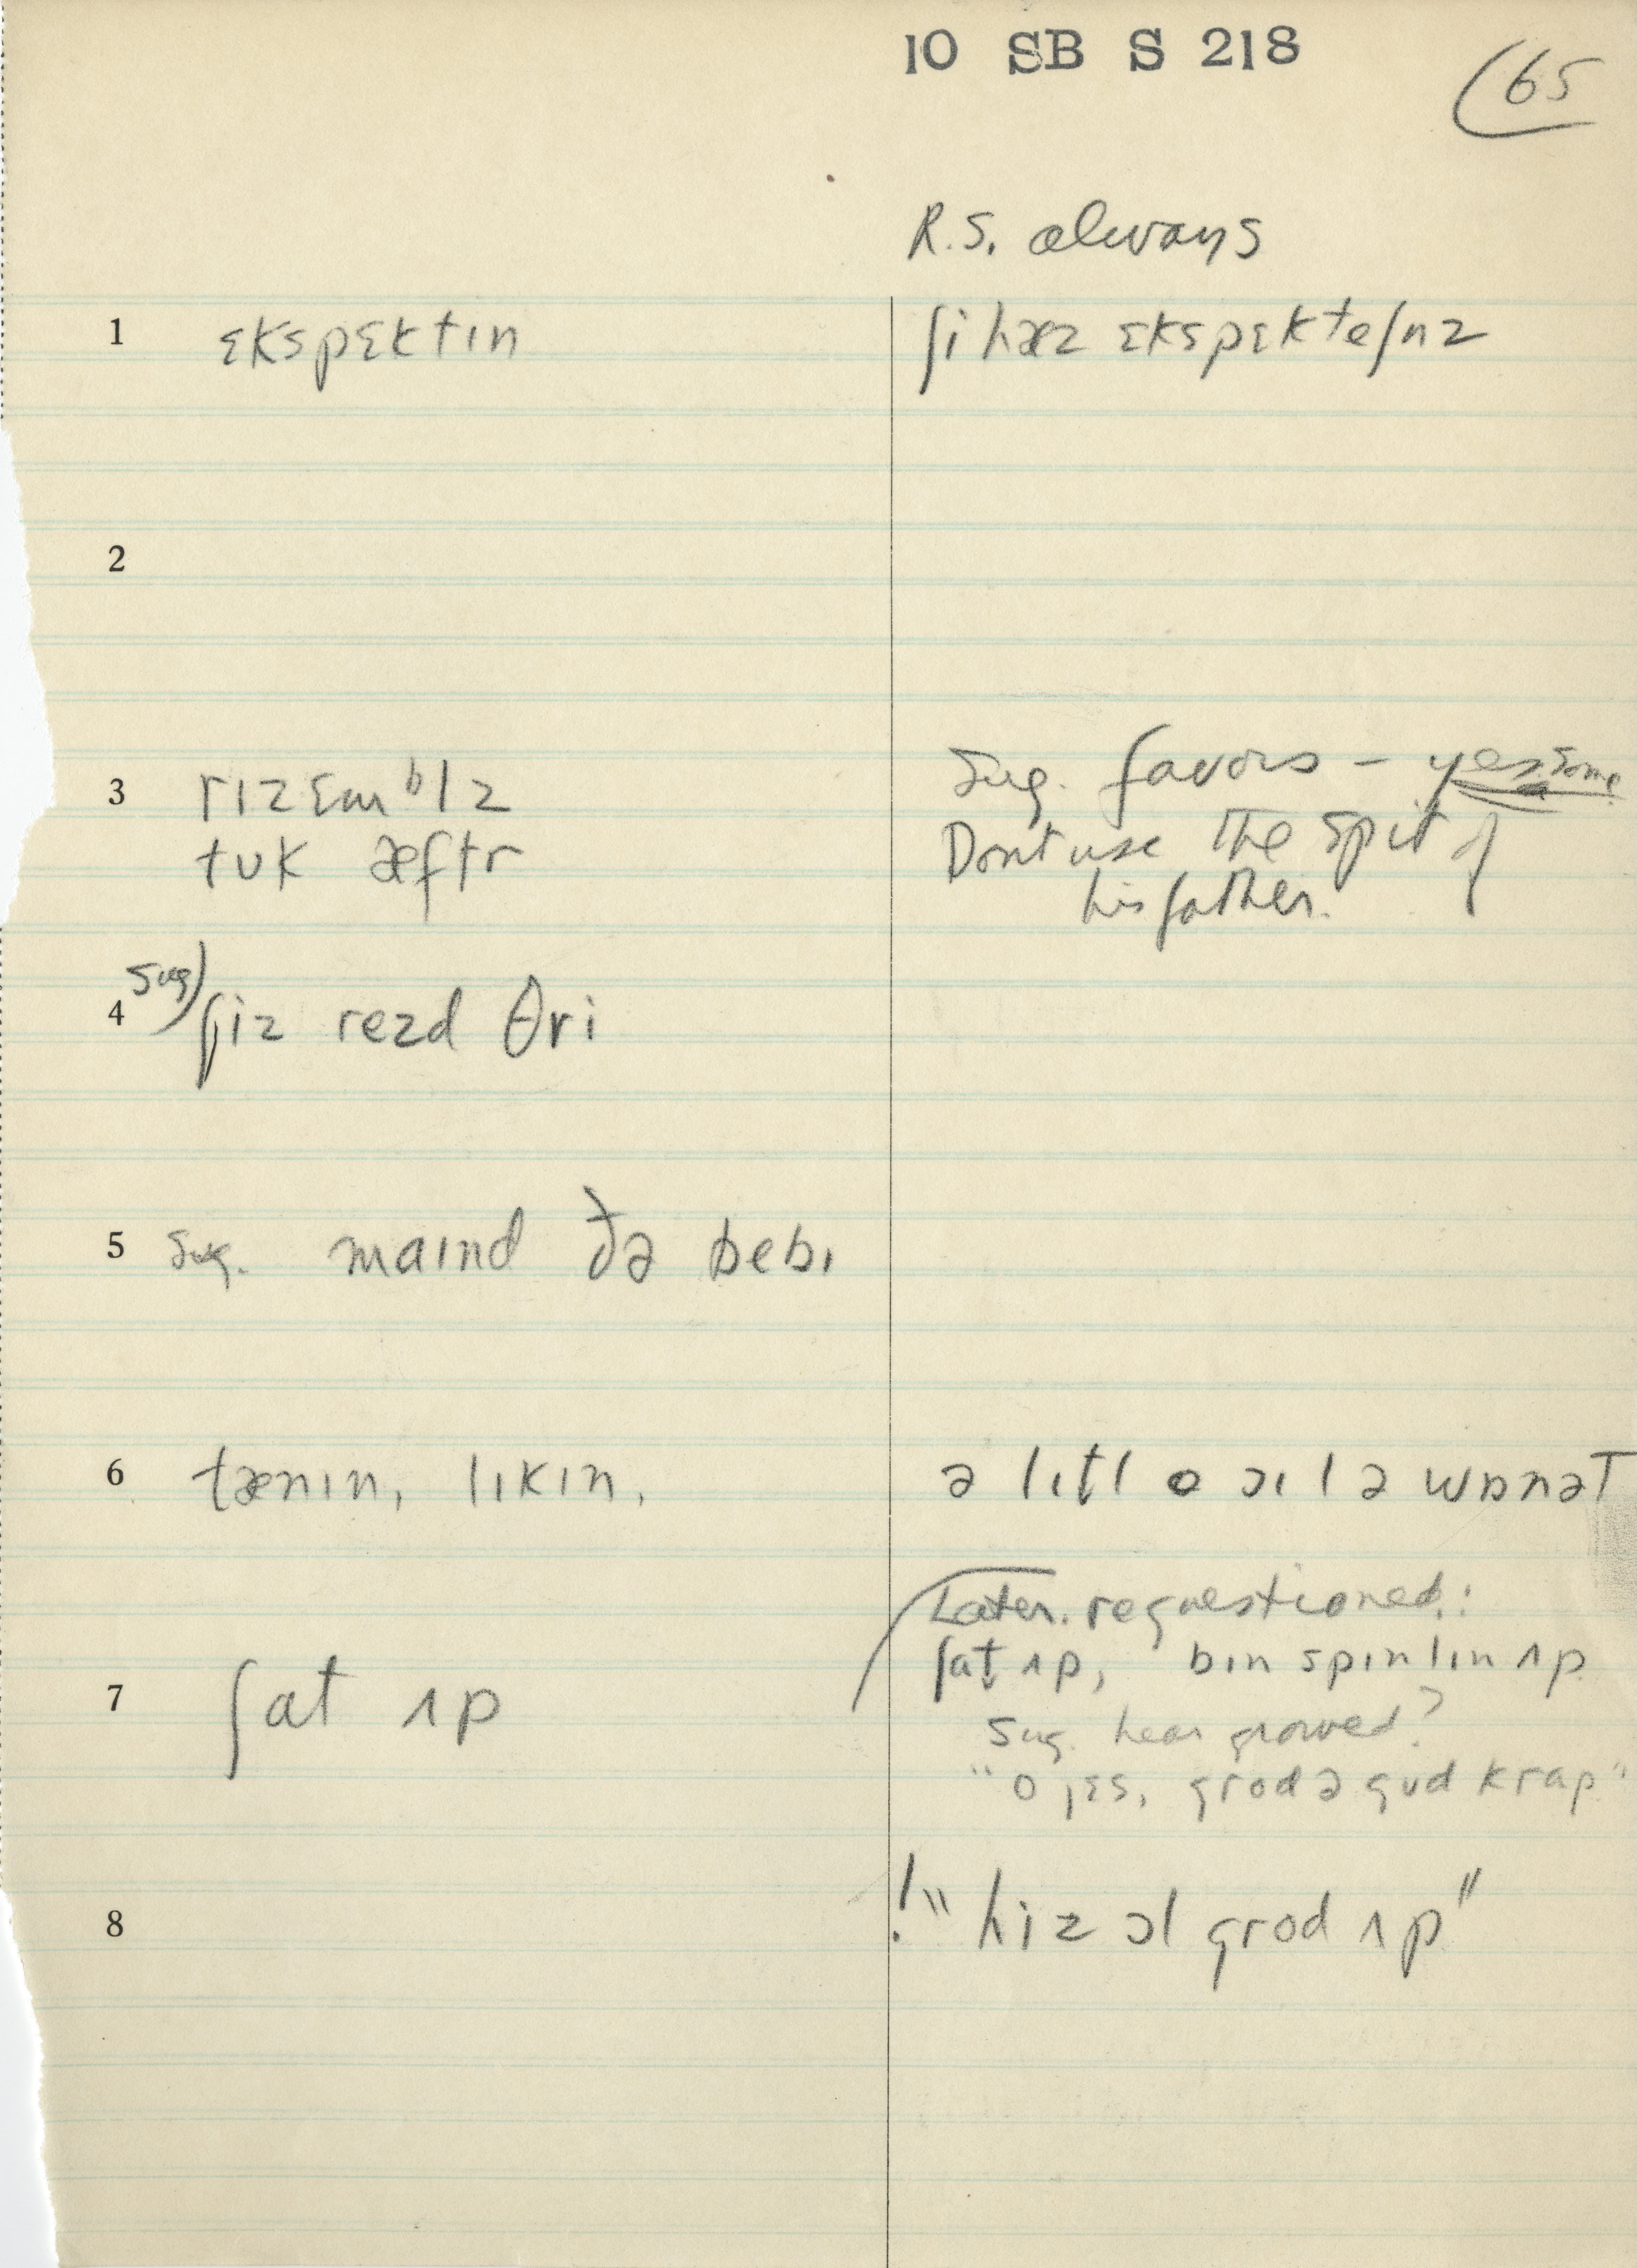 10 SB S 218
65
R.S. always
1 ɛkspɛktɪn ʃi hæz ɛkspɛkteʃnz
2
3 rɪzɛmᵇlz Sug. favors – yes some
tʊk æftr Dont use the spit of
his father.
4 Sug) ʃiz rezd θri
5 Sug. maɪnd ðə bebɪ
6 tænɪn, lɪkɪn, ə lɪtl o ɔɪl ə wɒnət
Later. requestioned:
ʃat̬ ʌp, bɪn spɪnlɪn ʌp
7 ʃat ʌp
Sug. hear growed?
"o jɛs, grod ə gʊd krap"
8 ! "hiz ɔl grod ʌp"